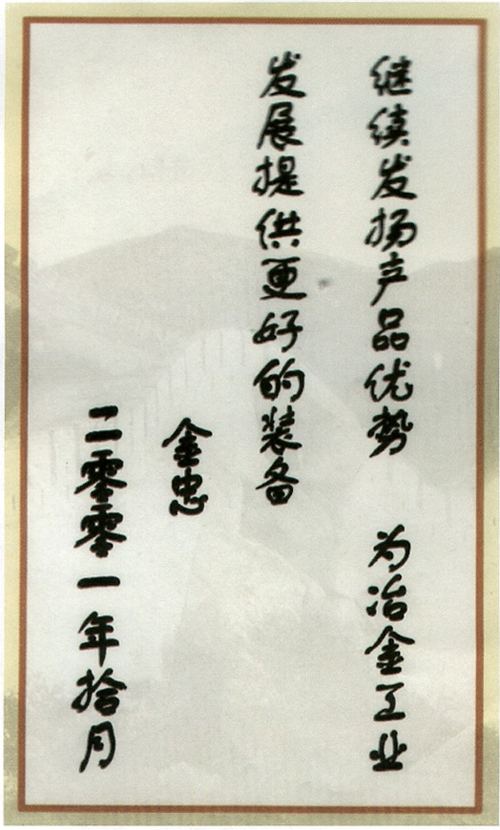 继续发扬产品优势 为冶金工业
发展提供更好的装备
金忠
二零零一年拾月